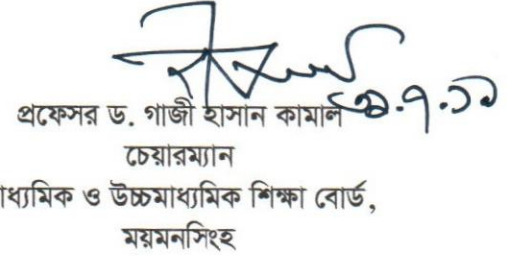 প্রফেসর ড. গাজী হাসান কামাল
চেয়ারম্যান
াধ্যমিক ও উচ্চমাধ্যমিক শিক্ষা বোর্ড,
ময়মনসিংহ